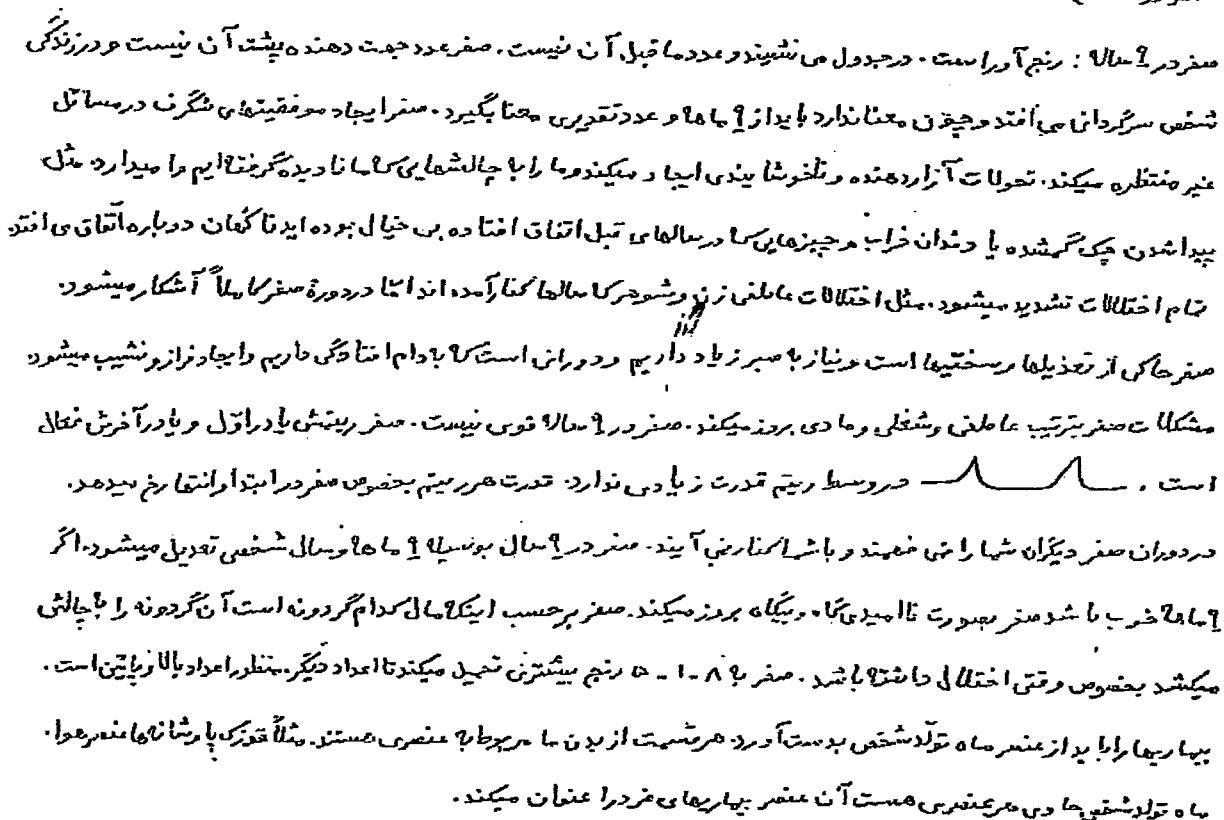 صفر در ۹ ساله : رنج‌آور است . در جدول می نشیند و عدد ما قبل آن نیست . صفر عدد جهت دهنده پشت آن نیست و در زندگی
شخص سرگردانی می افتد و چون معنا ندارد باید از ۹ ماهه و عدد تقدیری معنا بگیرد . صفر ایجاد موفقیتهای شگرف در مسائل
غیر منتظره میکند . تحولات آزاردهنده و ناخوشایندی ایجاد میکند و ما را با چالشهایی که ما نادیده گرفته ایم وا میدارد . مثل
پیدا شدن چک گمشده یا دندان خراب و چیزهایی که در سالهای قبل اتفاق افتاده بی خیال بوده اید ناگهان دوباره اتفاق می افتد
تمام اختلالات تشدید میشود . مثل اختلالات عاطفی زن و شوهر که سالها کنار آمده اند امّا در دورۀ صفر کاملاً آشکار میشود .
صفر حاکی از تعذیلها و سختیها است و نیاز به صبر زیاد داریم و دورانی است که به دام افتادگی داریم و ایجاد فراز و نشیب میشود .
مشکلات صفر بترتیب عاطفی و شغلی و مادی بروز میکند . صفر در ۹ ساله قوی نیست . صفر ریتمش یا در اوّل و یا در آخرش فعال
است . در وسط ریتم قدرت زیادی ندارد . قدرت هر ریتم بخصوص صفر در ابتدا و انتها رخ میدهد .
در دوران صفر دیگران شما را نمی فهمند و با شما کنار نمی آیند . صفر در ۹ سال بوسیله ۹ ماهه و سال شخصی تعدیل میشود . اگر
۹ ماهه خوب باشد صفر بصورت ناامیدی گاه و بیگاه بروز میکند . صفر بر حسب اینکه مال کدام گردونه است آن گردونه را به چالش
میکشد بخصوص وقتی اختلال داشته باشد . صفر به ۸ - ۱ - ۵ رنج بیشتری تحمیل میکند تا اعداد دیگر . منظور اعداد بالا و پایین است .
بیماریها را باید از عنصر ماه تولد شخص بدست آورد . هر قسمت از بدن ما مربوط به عنصری هستند . مثلاً قوزک پا و شانه ها عنصر هوا .
ماه تولد شخص حاوی هر عنصری هست آن عنصر بیماریهای فرد را عنوان میکند .